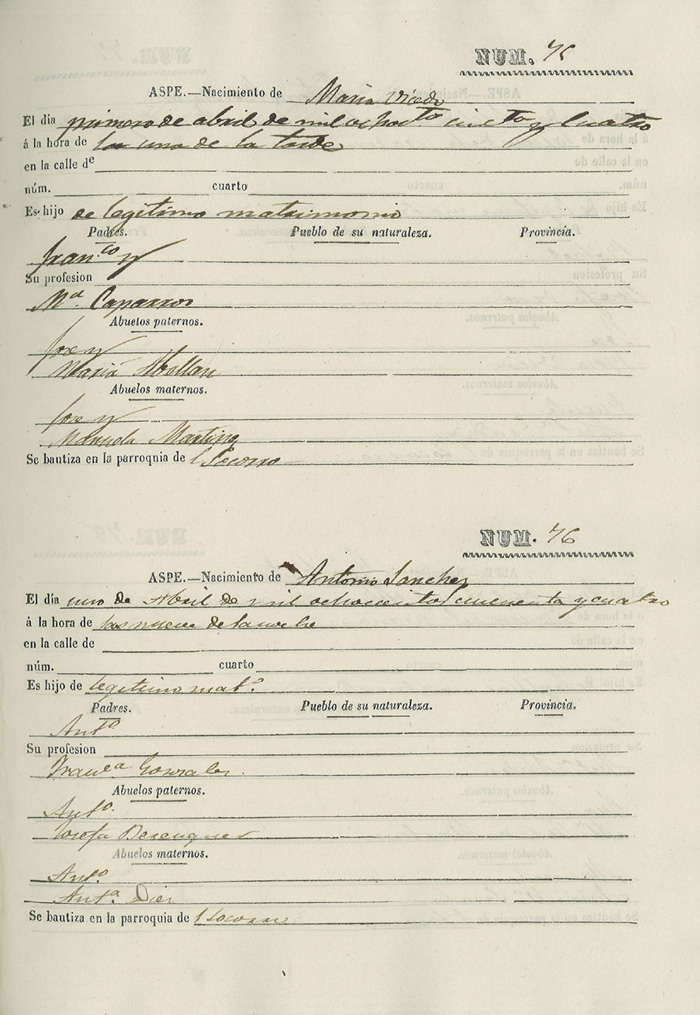 NUM. 75
ASPE.—Nacimiento de Maria Vicedo
El dia primero de abril de mil ochocto cincta y cuatro
á la hora de la una de la tarde
en la calle de
núm. cuarto
Es hijo de legitimo matrimonio
Padres. Pueblo de su naturaleza. Provincia.
Franco y
Su profesion
Ma. Caparros
Abuelos paternos.
Jose y
Maria Abellan
Abuelos maternos.
Jose y
Manuela Martinez
Se bautiza en la parroquia de l Socorro
NUM. 76
ASPE.—Nacimiento de Antonio Sanchez
El dia uno de Abril de mil ochociento cincuenta y cuatro
á la hora de las nueve de la noche
en la calle de
núm. cuarto
Es hijo de legitimo mato.
Padres. Pueblo de su naturaleza. Provincia.
Anto.
Su profesion
Franca Gonzalez
Abuelos paternos.
Anto.
Josefa Berenguer
Abuelos maternos.
Anto.
Anta. Diez
Se bautiza en la parroquia de l Socorro